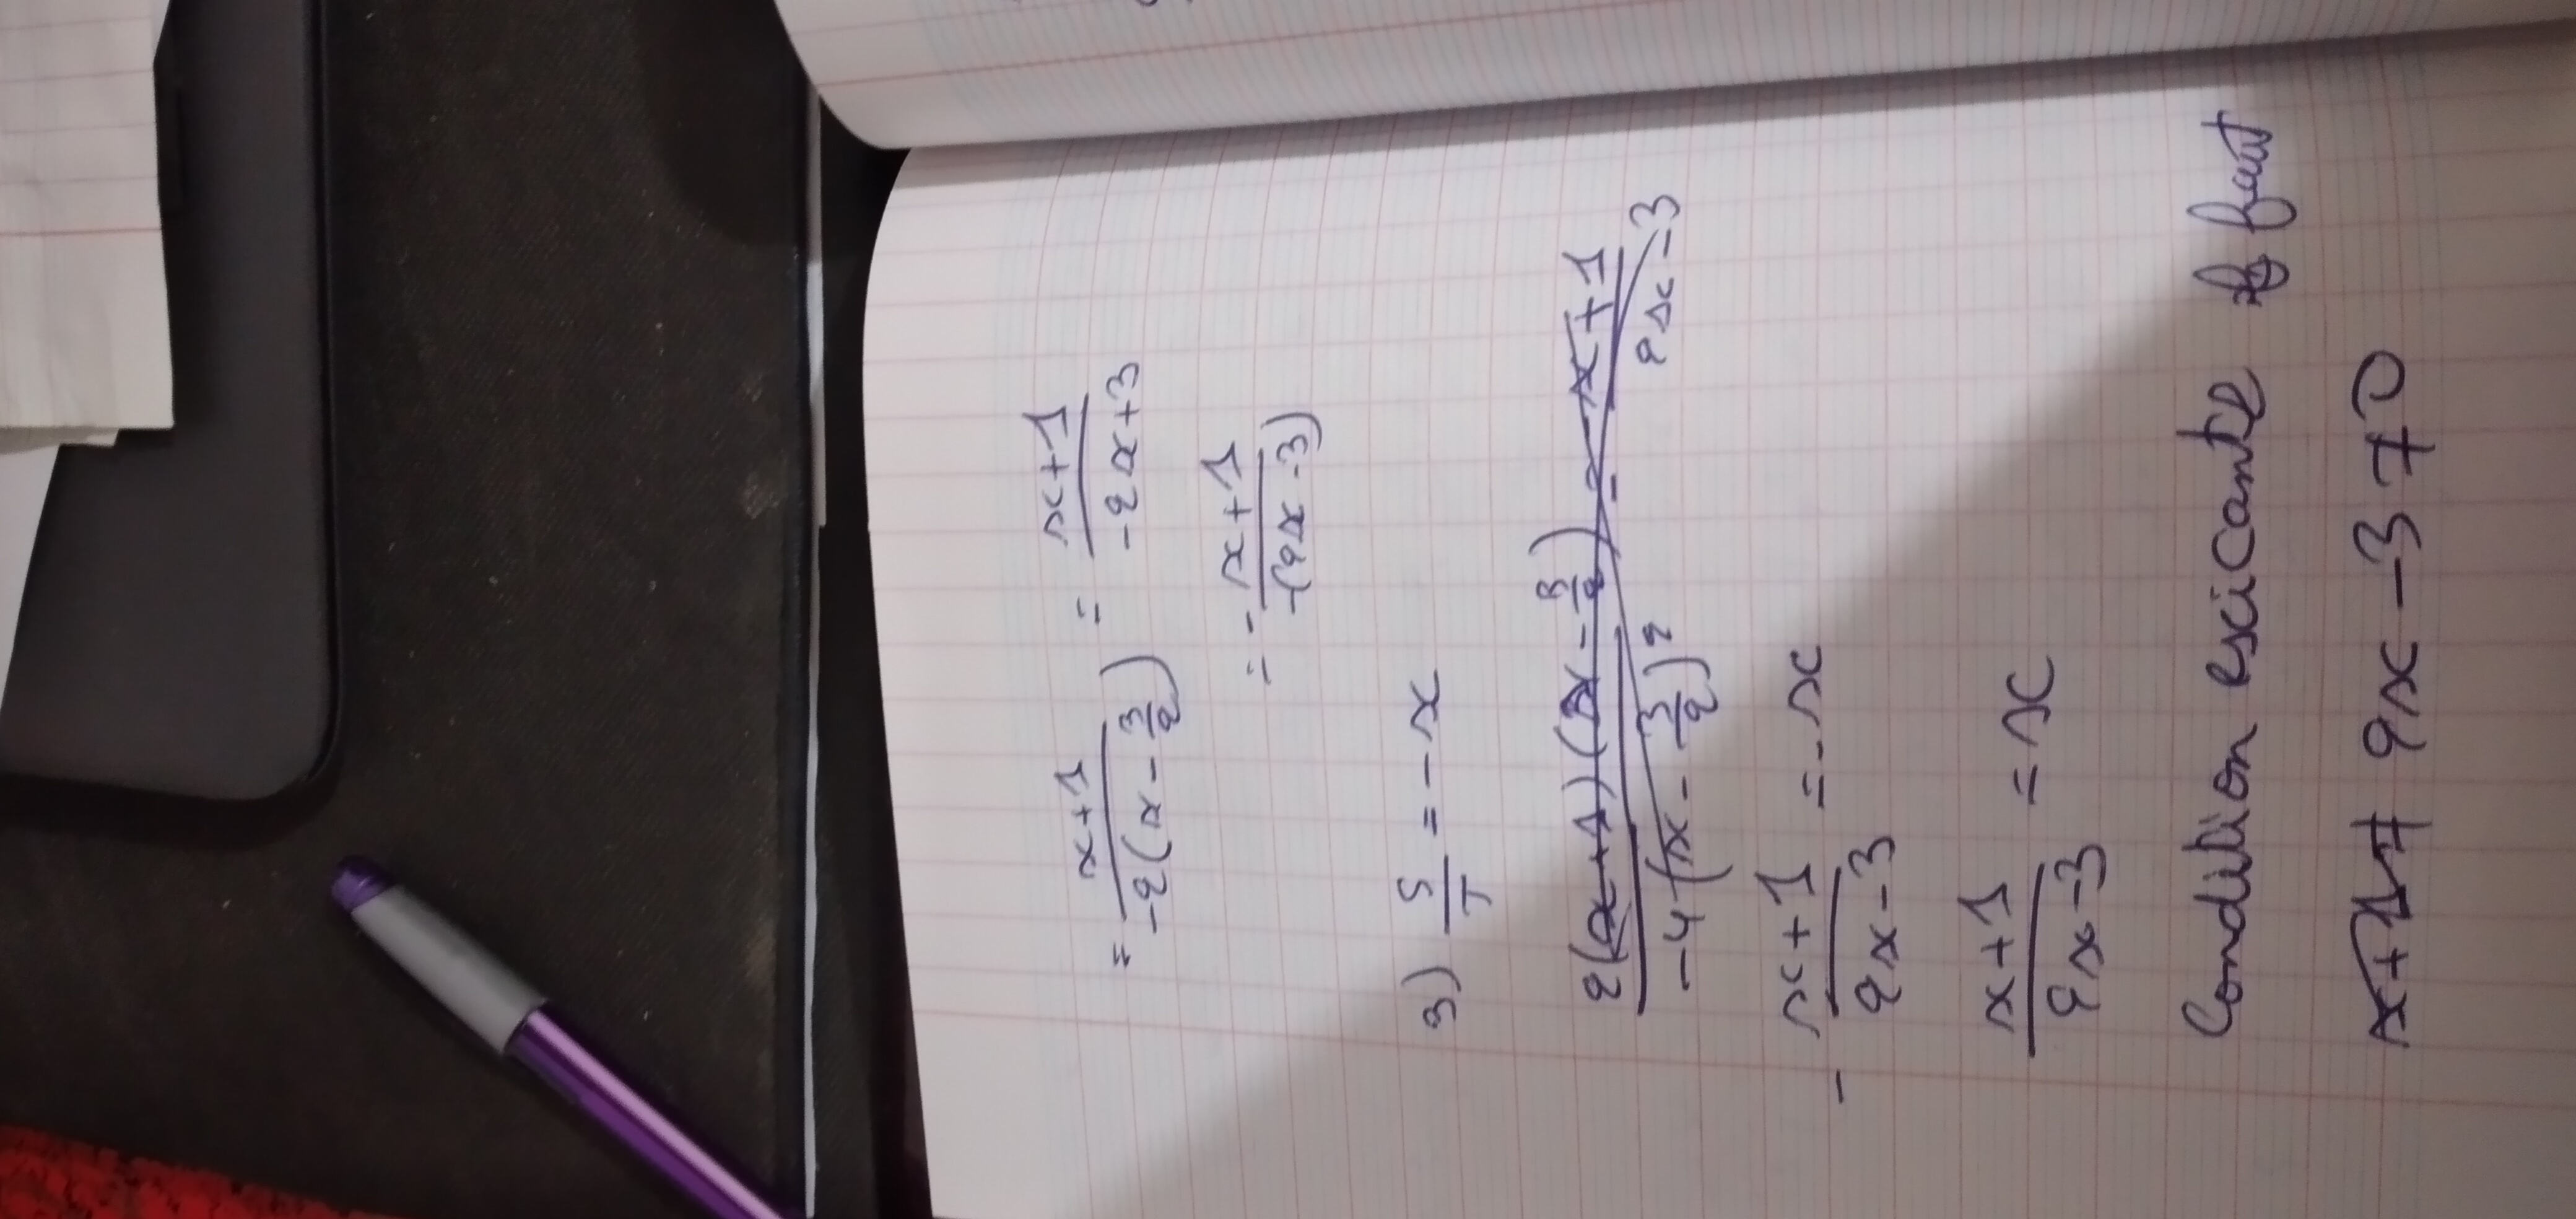 = x+1 / -2(x - 3/2) = x+1 / -2x+3
= - x+1 / -(2x-3)
3) S/T = -x
2(x+1)(x - 3/2) / -4(x - 3/2)² = - x+1 / 2x-3
- x+1 / 2x-3 = -x
x+1 / 2x-3 = x
Condition exicante il faut
x+1≠ 2x-3≠0